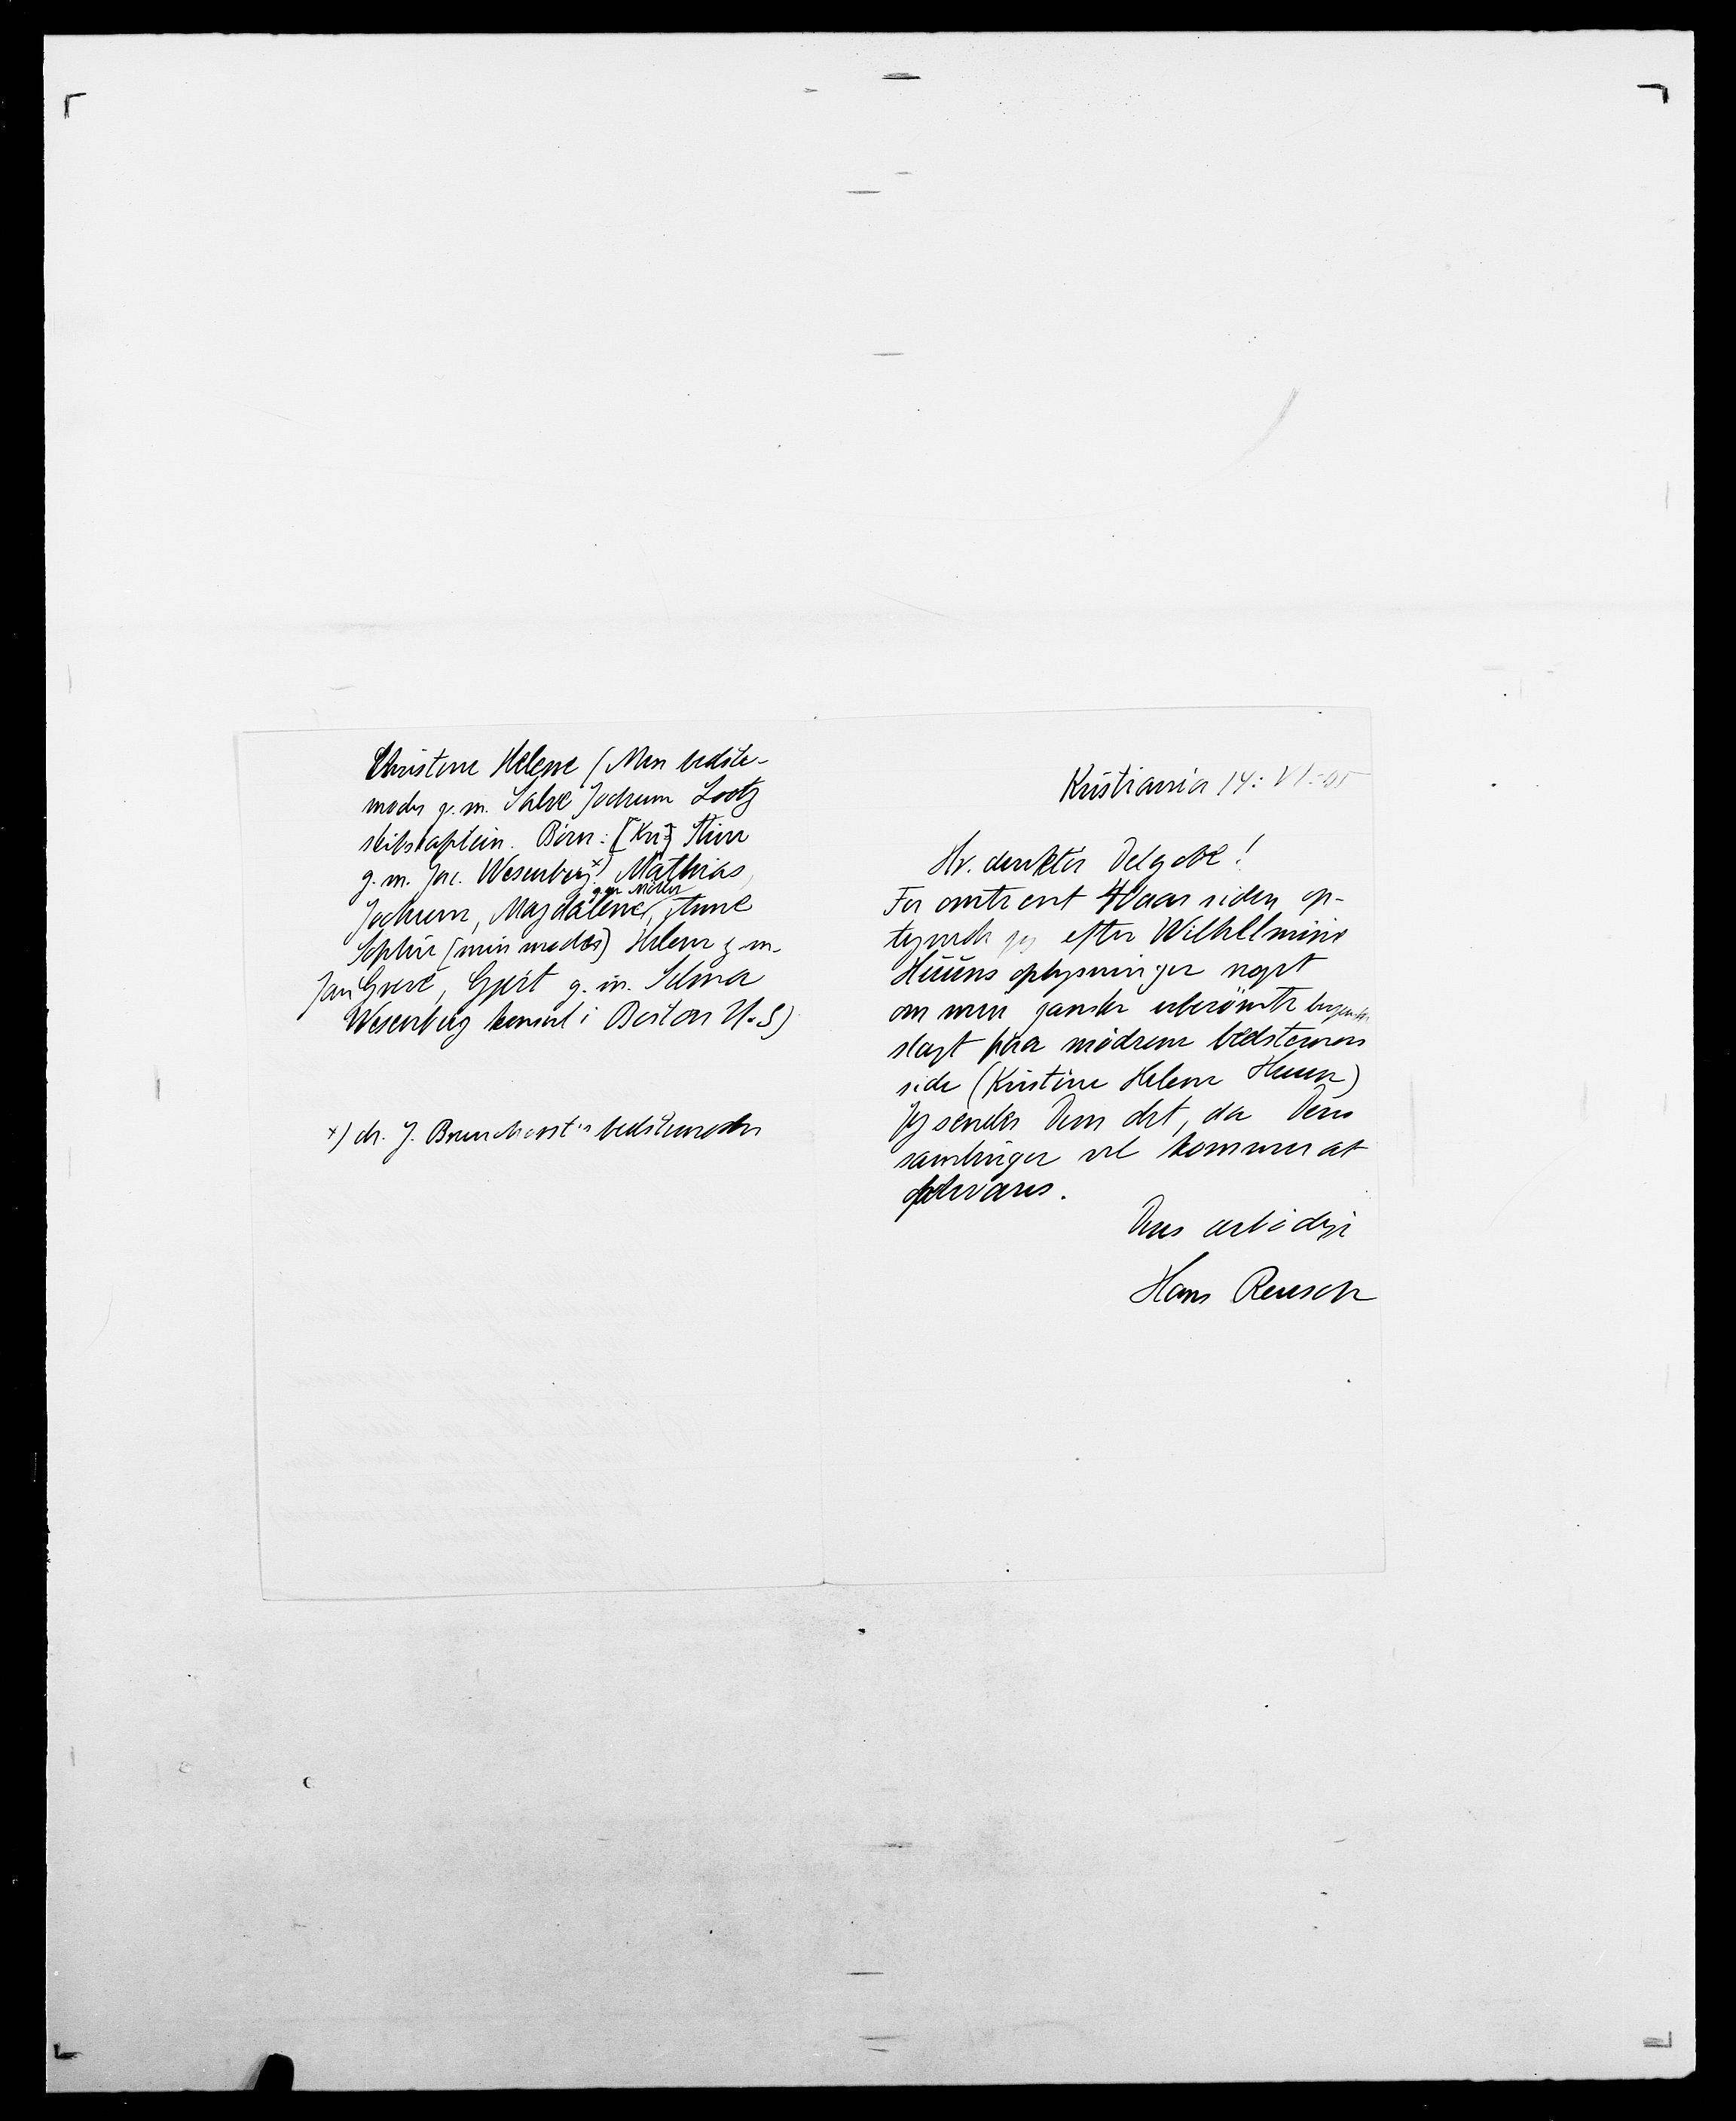 Christine Helene (Min bedste-
moder g. m. Salve Jochum Lootz
skibskaptein. Børn: [Kri] Stine
g. m. Jac. Wesenberg x) Mathias,
gm Møller
Jochum, Magdalene, Anne
Sophie (min moder) Helene g m.
Jan Greve, Gjert g. m. Selma
Wesenberg konsul i Boston U.S)
x) dr. J. Brunchorst's bedstemoder
Kristiania 14: VI-05
Hr. direktør Delgobe!
For omtrent 40 aar siden op-
tegnede jeg efter Wilhelmine
Huuns oplysninger noget
om min ganske uberømte bergenske
slægt paa mødrene bedstemors
side (Kristine Helene Huun)
Jeg sender Dem det, da Deres
samlinger vel kommer at
opbevares.
Deres ærbødige
Hans Reusch